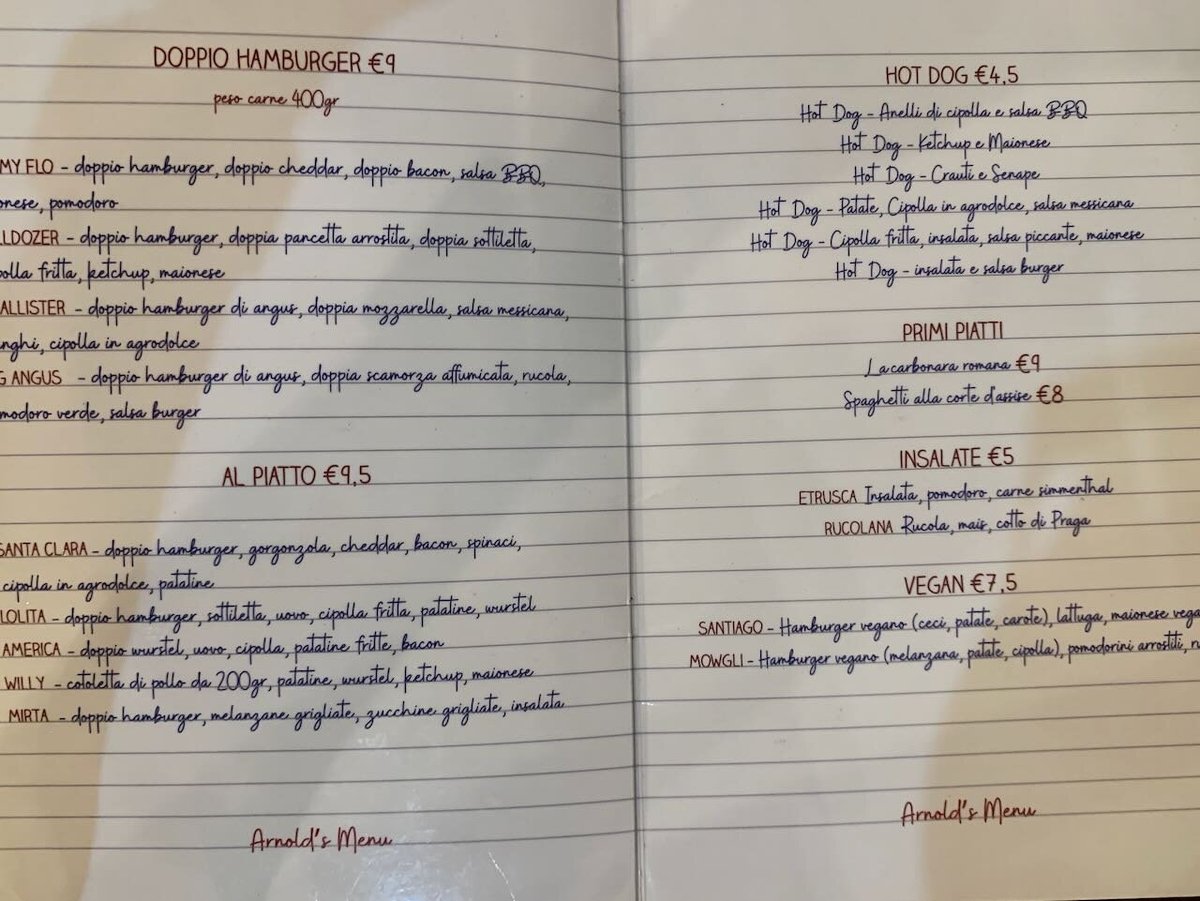 DOPPIO HAMBURGER €9
peso carne 400gr
MY FLO - doppio hamburger, doppio cheddar, doppio bacon, salsa BBQ,
onese, pomodoro
LLDOZER - doppio hamburger, doppia pancetta arrostita, doppia sottiletta,
polla fritta, ketchup, maionese
ALLISTER - doppio hamburger di angus, doppia mozzarella, salsa messicana,
nghi, cipolla in agrodolce
G ANGUS - doppio hamburger di angus, doppia scamorza affumicata, rucola,
modoro verde, salsa burger
AL PIATTO €9,5
SANTA CLARA - doppio hamburger, gorgonzola, cheddar, bacon, spinaci,
cipolla in agrodolce, patatine
LOLITA - doppio hamburger, sottiletta, uovo, cipolla fritta, patatine, wurstel
AMERICA - doppio wurstel, uovo, cipolla, patatine fritte, bacon
WILLY - cotoletta di pollo da 200gr, patatine, wurstel, ketchup, maionese
MIRTA - doppio hamburger, melanzane grigliate, zucchine grigliate, insalata
Arnold's Menu
HOT DOG €4,5
Hot Dog - Anelli di cipolla e salsa BBQ
Hot Dog - Ketchup e Maionese
Hot Dog - Crauti e Senape
Hot Dog - Patate, Cipolla in agrodolce, salsa messicana
Hot Dog - Cipolla fritta, insalata, salsa piccante, maionese
Hot Dog - insalata e salsa burger
PRIMI PIATTI
La carbonara romana €9
Spaghetti alla corte d'assise €8
INSALATE €5
ETRUSCA Insalata, pomodoro, carne simmenthal
RUCOLANA Rucola, mais, cotto di Praga
VEGAN €7,5
SANTIAGO - Hamburger vegano (ceci, patate, carote), lattuga, maionese vega
MOWGLI - Hamburger vegano (melanzana, patate, cipolla), pomodorini arrostiti, ru
Arnold's Menu